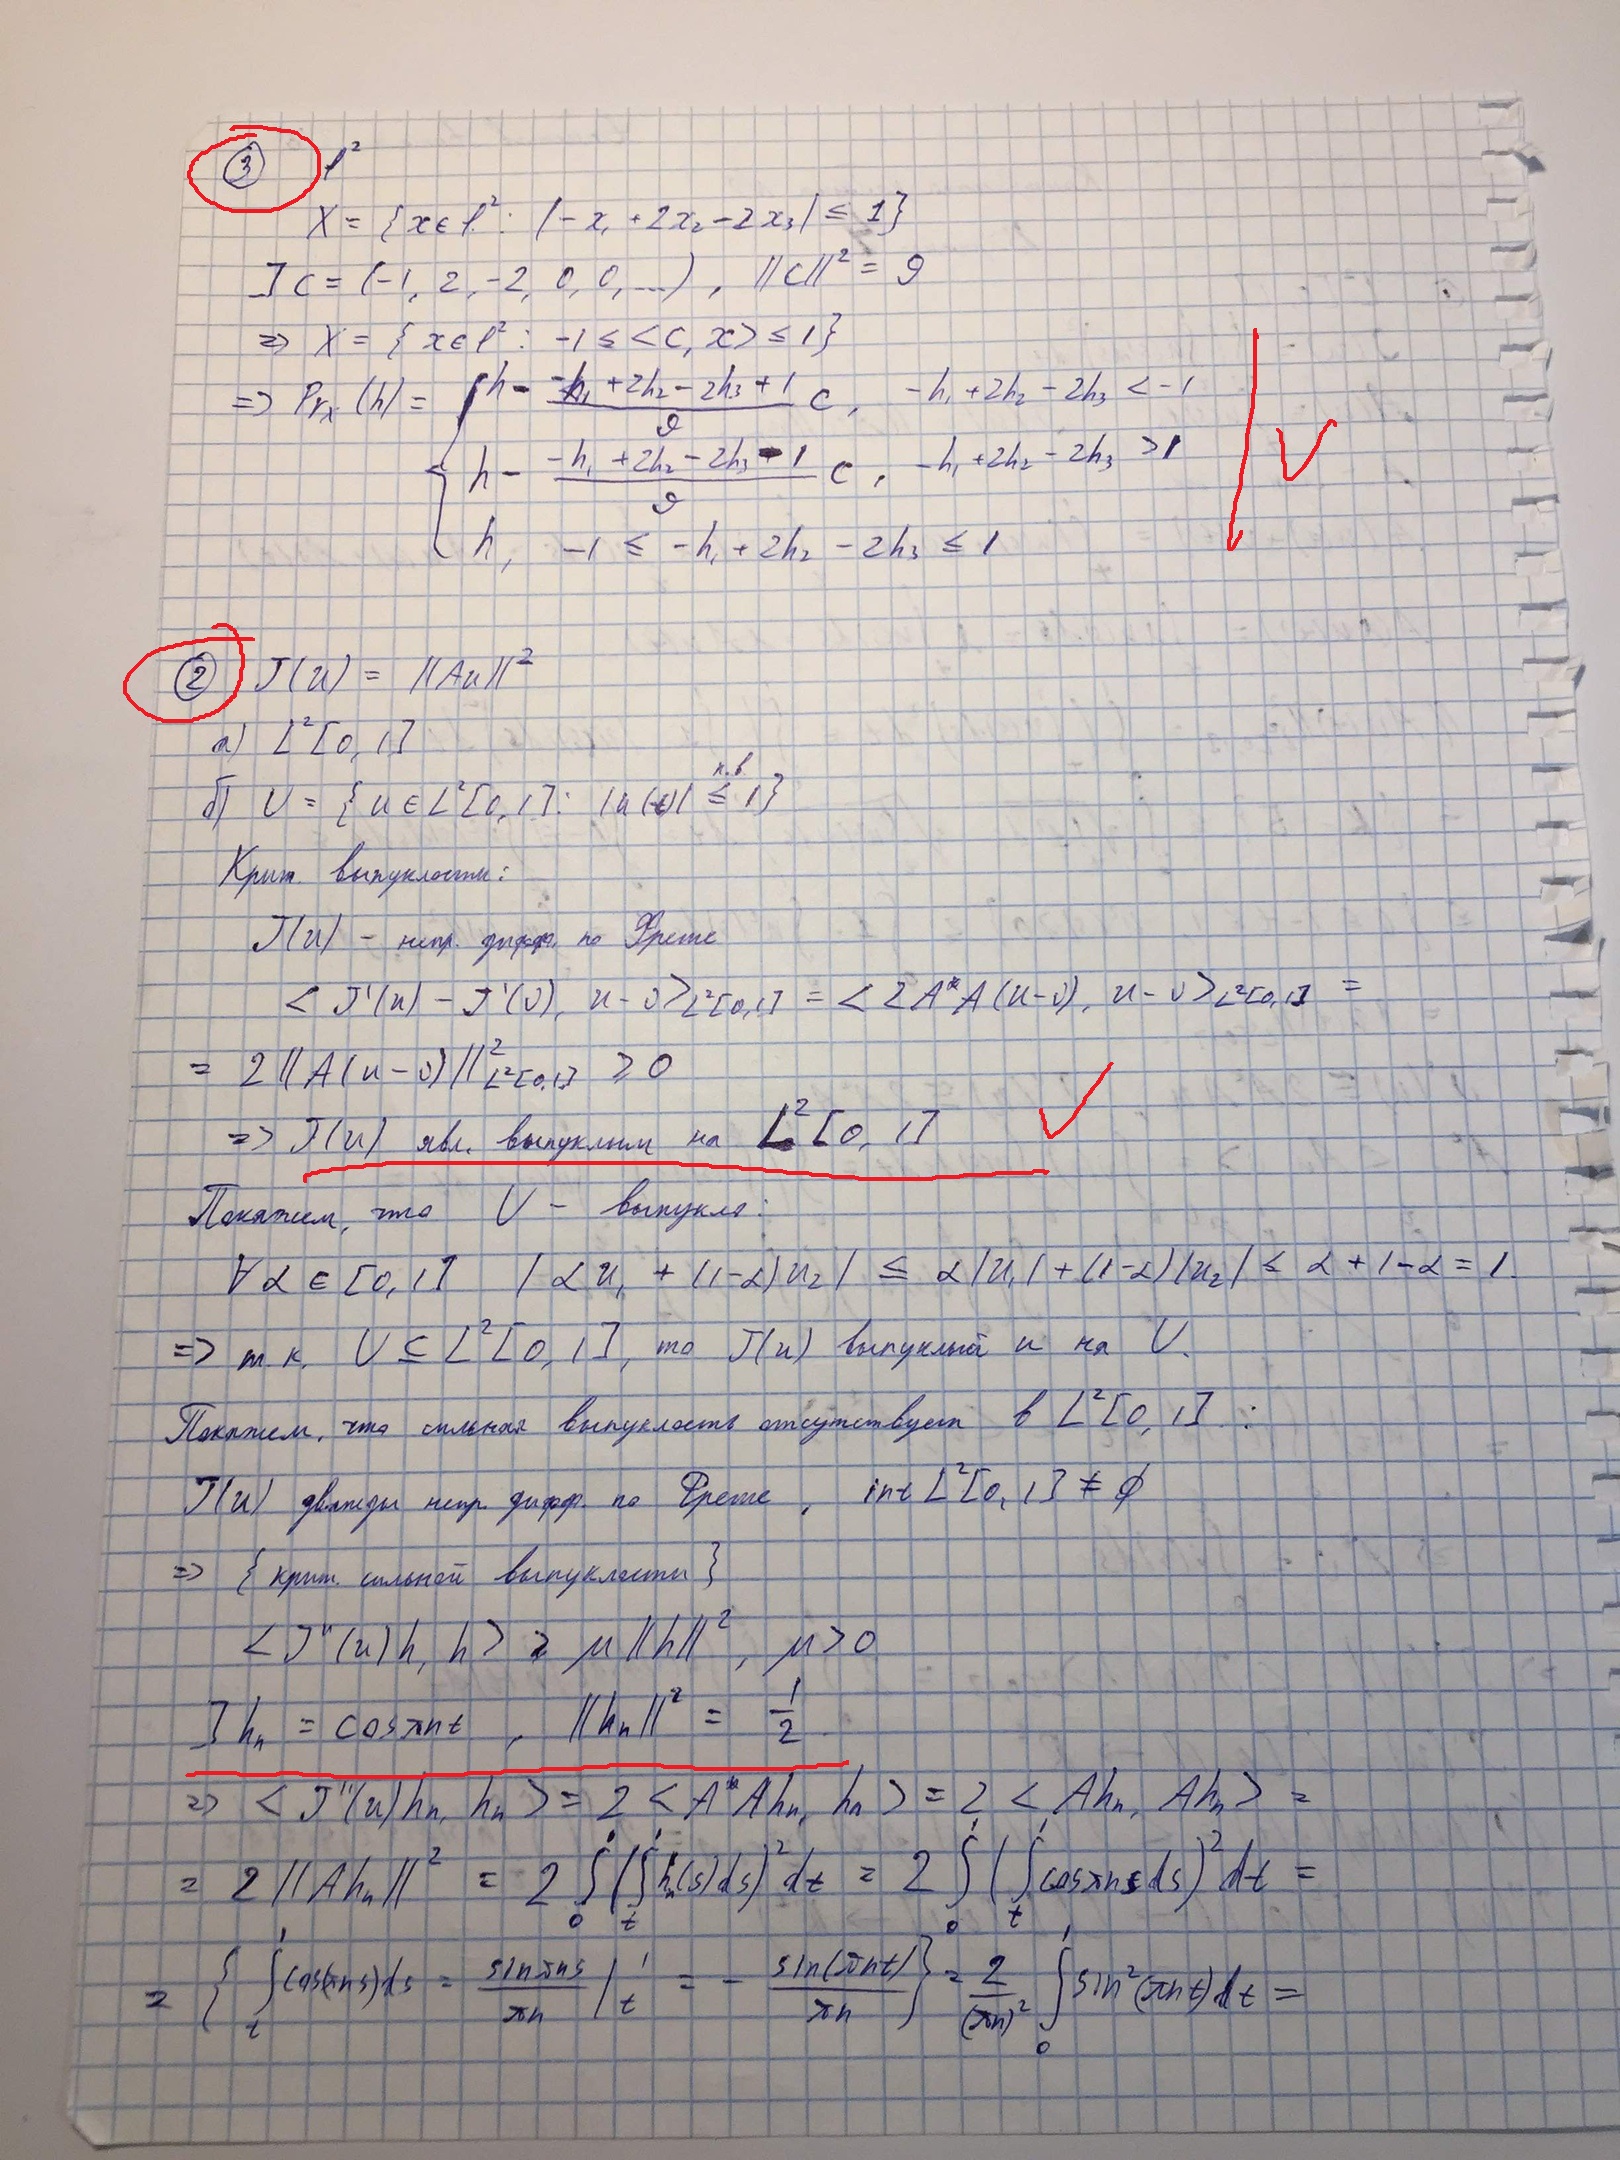 ③ l²
X = {x ∈ l²: |-x₁ + 2x₂ - 2x₃| ≤ 1}
] c = (-1, 2, -2, 0, 0, ...), ||c||² = 9
=> X = {x ∈ l²: -1 ≤ <c, x> ≤ 1}
=> Prₓ(h) = { h - (-h₁ + 2h₂ - 2h₃ + 1)/9 c, -h₁ + 2h₂ - 2h₃ < -1
h - (-h₁ + 2h₂ - 2h₃ - 1)/9 c, -h₁ + 2h₂ - 2h₃ > 1
h, -1 ≤ -h₁ + 2h₂ - 2h₃ ≤ 1
V
② J(u) = ||Au||²
а) L²[0, 1]
б) U = {u ∈ L²[0, 1]: |u(t)| ≤ 1} п.в.
Крит. выпуклости:
J(u) - непр. дифф. по Фреше
<J'(u) - J'(v), u - v>_L²[0,1] = <2A*A(u-v), u-v>_L²[0,1] =
= 2||A(u-v)||²_L²[0,1] ≥ 0
=> J(u) явл. выпуклым на L²[0, 1]
Покажем, что U - выпукло:
∀α ∈ [0, 1] |αu₁ + (1-α)u₂| ≤ α|u₁| + (1-α)|u₂| ≤ α + 1-α = 1.
=> т.к. U ⊆ L²[0, 1], то J(u) выпуклый и на U.
Покажем, что сильная выпуклость отсутствует в L²[0, 1]:
J(u) дважды непр. дифф. по Фреше, int L²[0, 1] ≠ ∅
=> {крит. сильной выпуклости}
<J''(u)h, h> ≥ μ||h||², μ > 0
] hₙ = cos πnt, ||hₙ||² = 1/2
=> <J''(u)hₙ, hₙ> = 2<A*Ahₙ, hₙ> = 2<Ahₙ, Ahₙ> =
= 2||Ahₙ||² = 2∫₀¹(∫ₜ¹hₙ(s)ds)²dt = 2∫₀¹(∫ₜ¹cos πns ds)²dt =
= {∫ₜ¹cos(πns)ds = sin πns/πn |ₜ¹ = - sin(πnt)/πn} = 2/(πn)² ∫₀¹sin²(πnt)dt =